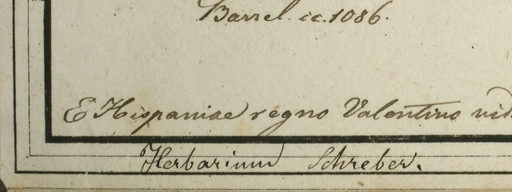 Barrel. ic. 1086.
E Hispaniae regno Valentino
Herbarium Schreber.